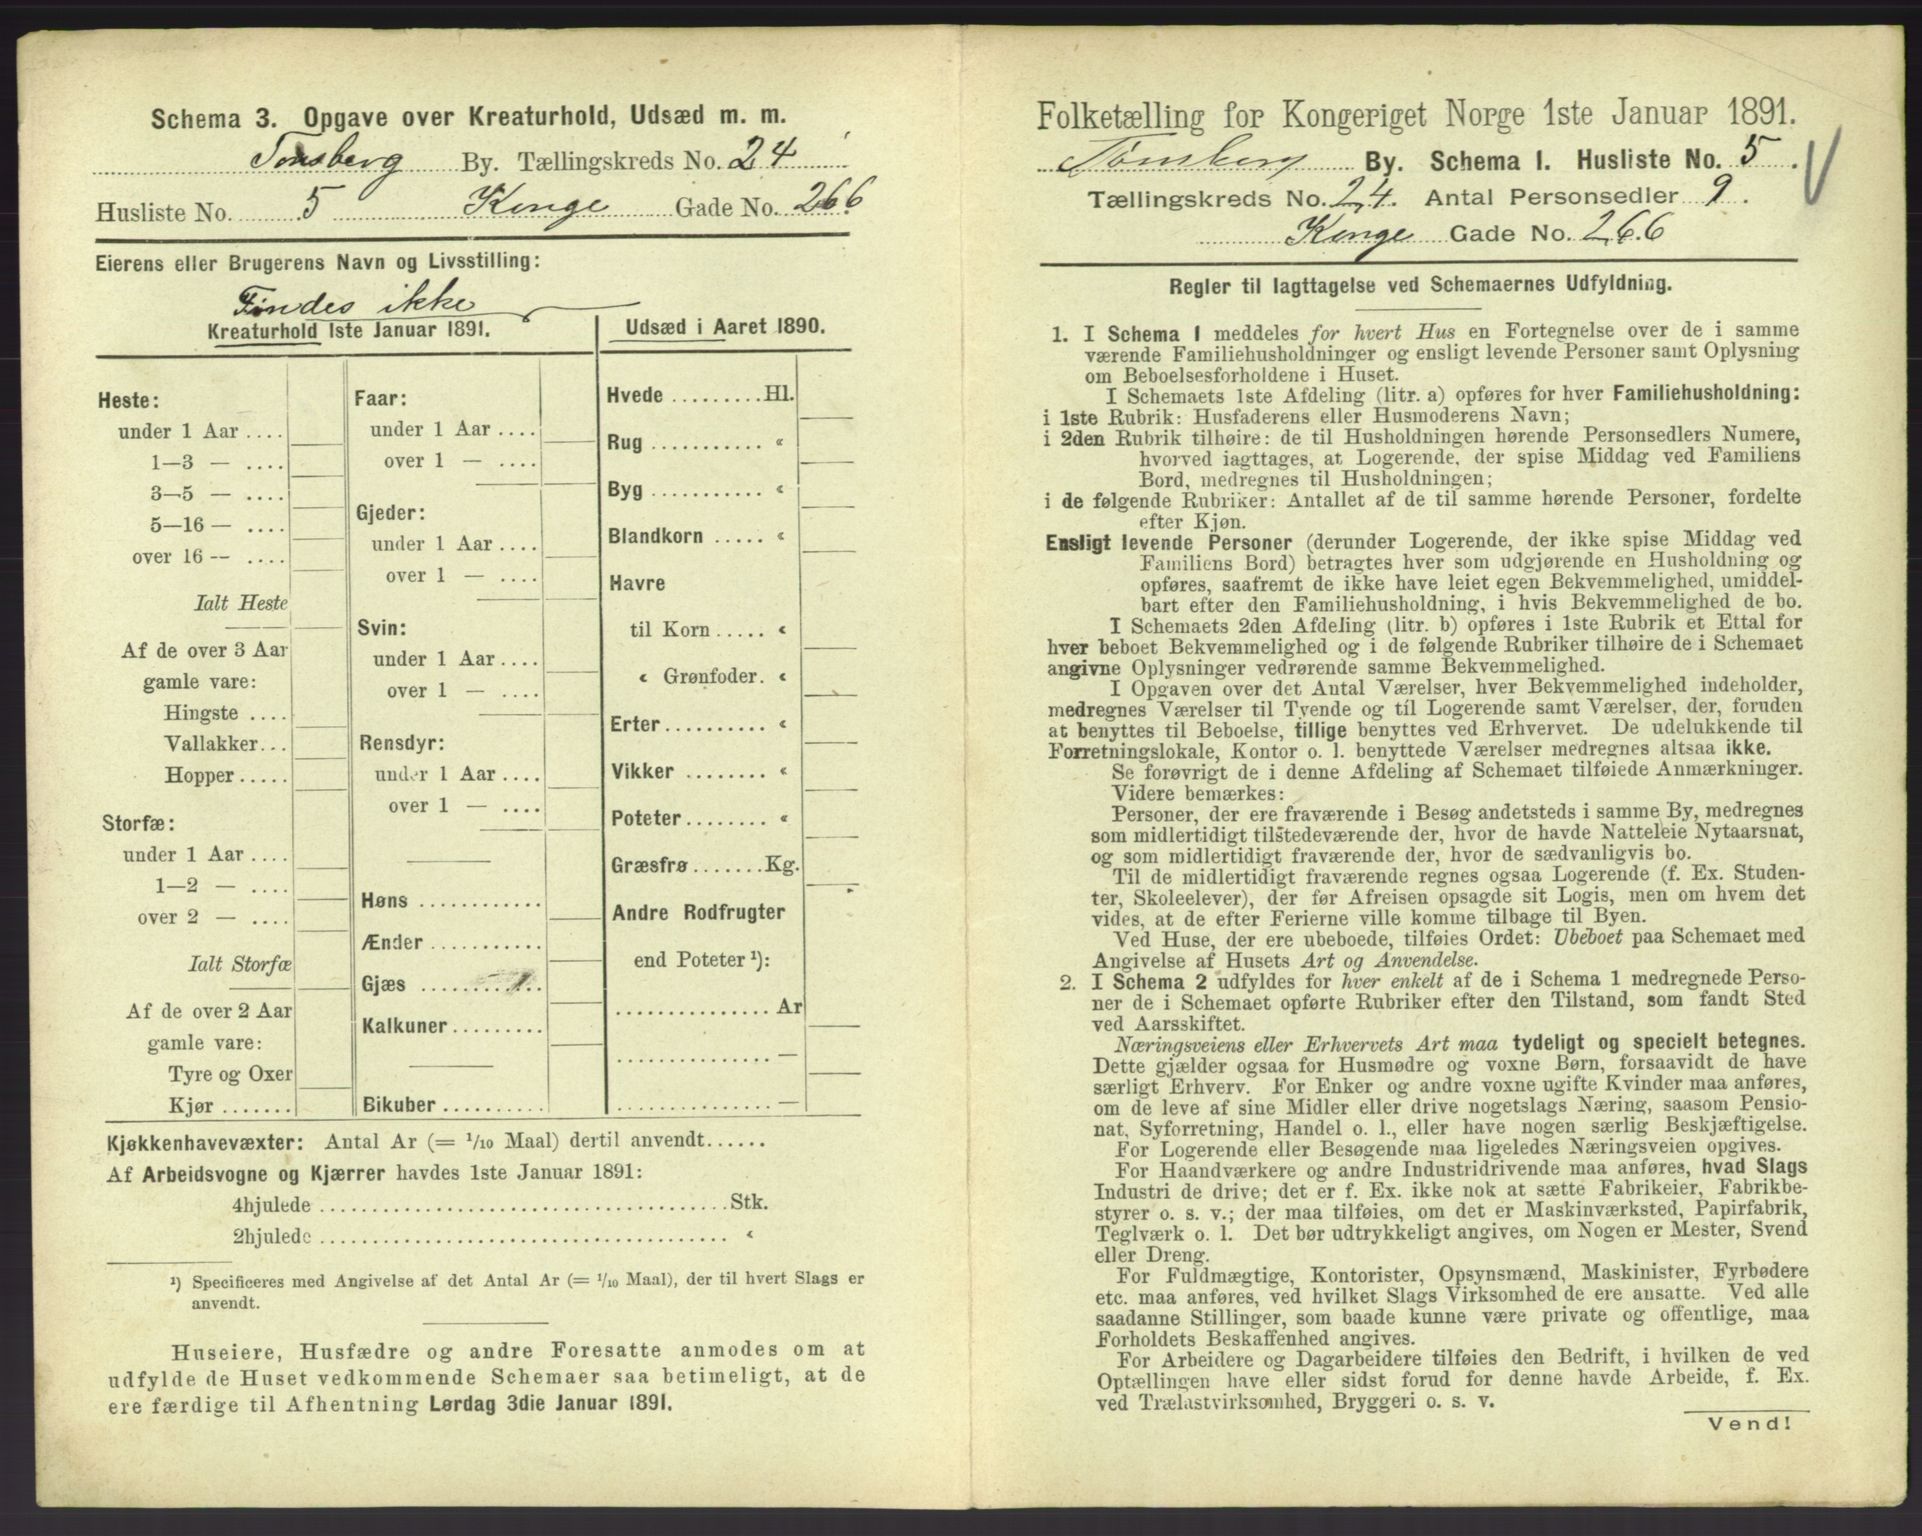 Schema 3. Opgave over Kreaturhold, Udsæd m. m.
Tønsberg By. Tællingskreds No. 24
Husliste No. 5 Konge Gade No. 266
Eierens eller Brugerens Navn og Livsstilling:
Findes ikke
Kreaturhold 1ste Januar 1891.
Heste:
under 1 Aar ....
1—3 — ....
3—5 — ....
5—16 — ....
over 16 — ....
Ialt Heste
Af de over 3 Aar
gamle vare:
Hingste ....
Vallakker...
Hopper.....
Storfæ:
under 1 Aar ....
1—2 — ....
over 2 — ....
Ialt Storfæ
Af de over 2 Aar
gamle vare:
Tyre og Oxer
Kjør .......
Faar:
under 1 Aar ....
over 1 — ....
Gjeder:
under 1 Aar ....
over 1 — ....
Svin:
under 1 Aar ....
over 1 — ....
Rensdyr:
under 1 Aar ....
over 1 — ....
Høns ............
Ænder ...........
Gjæs ............
Kalkuner.........
Bikuber ..........
Udsæd i Aaret 1890.
Hvede .........Hl.
Rug ........... «
Byg ........... «
Blandkorn ..... «
Havre
til Korn ..... «
« Grønfoder. «
Erter .......... «
Vikker ........ «
Poteter........ «
Græsfrø .......Kg.
Andre Rodfrugter
end Poteter ¹):
............... Ar
............... —
............... —
Kjøkkenhavevæxter: Antal Ar (= 1/10 Maal) dertil anvendt......
Af Arbeidsvogne og Kjærrer havdes 1ste Januar 1891:
4hjulede ........................................Stk.
2hjulede ........................................ «
¹) Specificeres med Angivelse af det Antal Ar (= 1/10 Maal), der til hvert Slags er
anvendt.
Huseiere, Husfædre og andre Foresatte anmodes om at
udfylde de Huset vedkommende Schemaer saa betimeligt, at de
ere færdige til Afhentning Lørdag 3die Januar 1891.
Folketælling for Kongeriget Norge 1ste Januar 1891.
Tønsberg By. Schema 1. Husliste No. 5.
Tællingskreds No. 24. Antal Personsedler 9.
Konge Gade No. 266
Regler til Iagttagelse ved Schemaernes Udfyldning.
1. I Schema 1 meddeles for hvert Hus en Fortegnelse over de i samme
værende Familiehusholdninger og ensligt levende Personer samt Oplysning
om Beboelsesforholdene i Huset.
I Schemaets 1ste Afdeling (litr. a) opføres for hver Familiehusholdning:
i 1ste Rubrik: Husfaderens eller Husmoderens Navn;
i 2den Rubrik tilhøire: de til Husholdningen hørende Personsedlers Numere,
hvorved iagttages, at Logerende, der spise Middag ved Familiens
Bord, medregnes til Husholdningen;
i de følgende Rubriker: Antallet af de til samme hørende Personer, fordelte
efter Kjøn.
Ensligt levende Personer (derunder Logerende, der ikke spise Middag ved
Familiens Bord) betragtes hver som udgjørende en Husholdning og
opføres, saafremt de ikke have leiet egen Bekvemmelighed, umiddel-
bart efter den Familiehusholdning, i hvis Bekvemmelighed de bo.
I Schemaets 2den Afdeling (litr. b) opføres i 1ste Rubrik et Ettal for
hver beboet Bekvemmelighed og i de følgende Rubriker tilhøire de i Schemaet
angivne Oplysninger vedrørende samme Bekvemmelighed.
I Opgaven over det Antal Værelser, hver Bekvemmelighed indeholder,
medregnes Værelser til Tyende og til Logerende samt Værelser, der, foruden
at benyttes til Beboelse, tillige benyttes ved Erhvervet. De udelukkende til
Forretningslokale, Kontor o. l. benyttede Værelser medregnes altsaa ikke.
Se forøvrigt de i denne Afdeling af Schemaet tilføiede Anmærkninger.
Videre bemærkes:
Personer, der ere fraværende i Besøg andetsteds i samme By, medregnes
som midlertidigt tilstedeværende der, hvor de havde Natteleie Nytaarsnat,
og som midlertidigt fraværende der, hvor de sædvanligvis bo.
Til de midlertidigt fraværende regnes ogsaa Logerende (f. Ex. Studen-
ter, Skoleelever), der før Afreisen opsagde sit Logis, men om hvem det
vides, at de efter Ferierne ville komme tilbage til Byen.
Ved Huse, der ere ubeboede, tilføies Ordet: Ubeboet paa Schemaet med
Angivelse af Husets Art og Anvendelse.
2. I Schema 2 udfyldes for hver enkelt af de i Schema 1 medregnede Perso-
ner de i Schemaet opførte Rubriker efter den Tilstand, som fandt Sted
ved Aarsskiftet.
Næringsveiens eller Erhvervets Art maa tydeligt og specielt betegnes.
Dette gjælder ogsaa for Husmødre og voxne Børn, forsaavidt de have
særligt Erhverv. For Enker og andre voxne ugifte Kvinder maa anføres,
om de leve af sine Midler eller drive nogetslags Næring, saasom Pensio-
nat, Syforretning, Handel o. l., eller have nogen særlig Beskjæftigelse.
For Logerende eller Besøgende maa ligeledes Næringsveien opgives.
For Haandværkere og andre Industridrivende maa anføres, hvad Slags
Industri de drive; det er f. Ex. ikke nok at sætte Fabrikeier, Fabrikbe-
styrer o. s. v.; der maa tilføies, om det er Maskinværksted, Papirfabrik,
Teglværk o. l. Det bør udtrykkeligt angives, om Nogen er Mester, Svend
eller Dreng.
For Fuldmægtige, Kontorister, Opsynsmænd, Maskinister, Fyrbødere
etc. maa anføres, ved hvilket Slags Virksomhed de ere ansatte. Ved alle
saadanne Stillinger, som baade kunne være private og offentlige, maa
Forholdets Beskaffenhed angives.
For Arbeidere og Dagarbeidere tilføies den Bedrift, i hvilken de ved
Optællingen have eller sidst forud for denne havde Arbeide, f. Ex.
ved Trælastvirksomhed, Bryggeri o. s. v.
Vend!